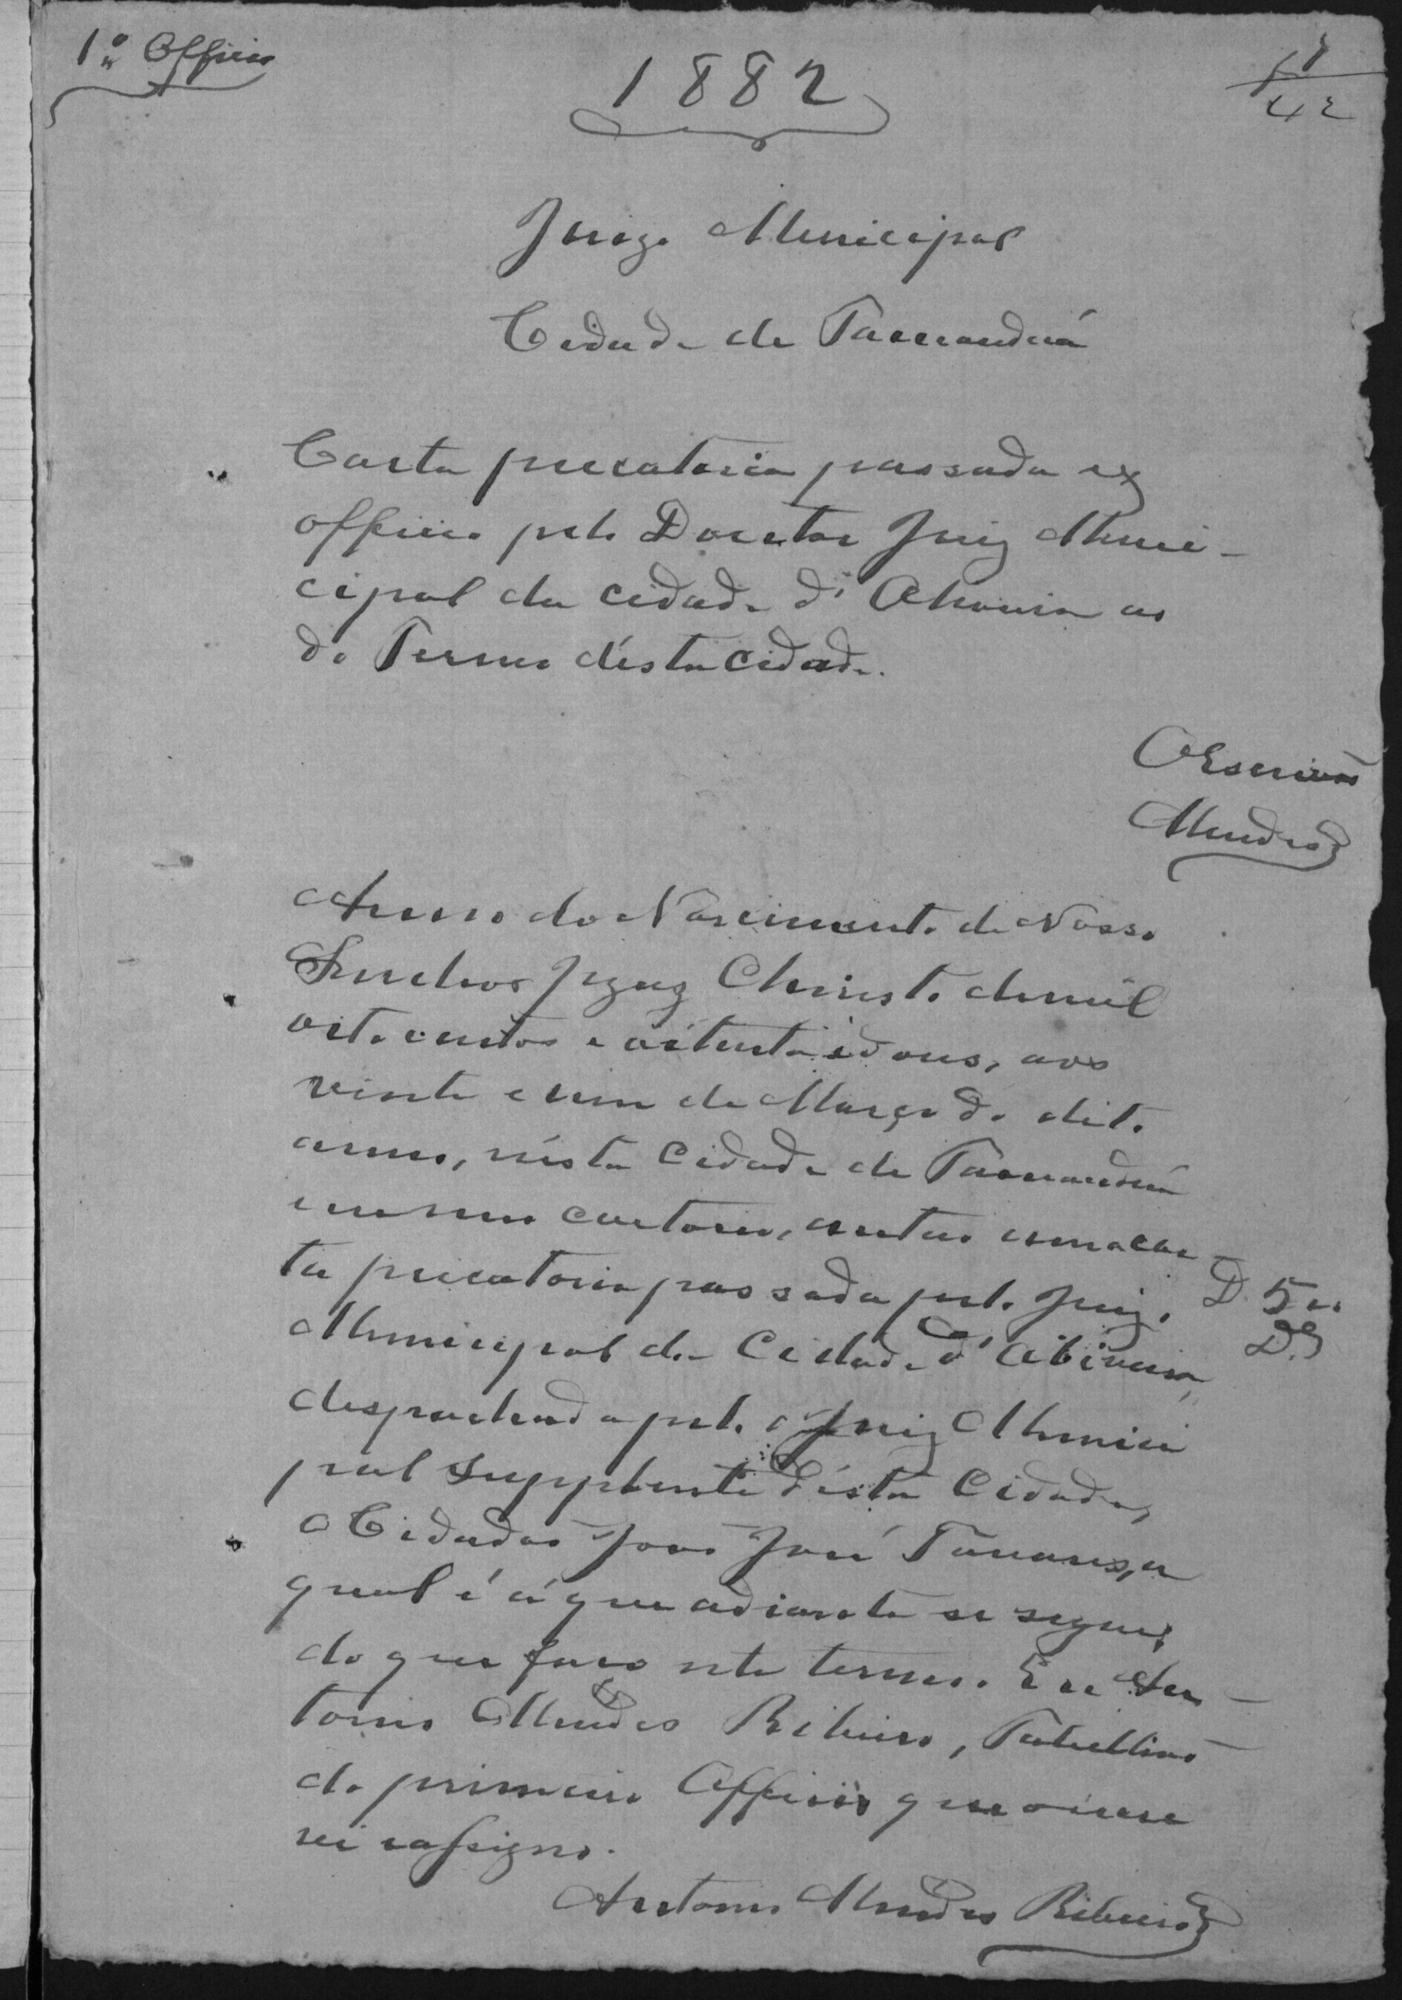 1º Officio
1882
Juizo Municipal
Cidade de Tamanduá
Carta precatoria passada ex
officio pelo Doutor Juiz Muni-
cipal da cidade d'
do Termo d'ésta cidade.
O Escrivão
Mendes
Anno do Nascimento de Nosso
Senhor Jezuz Christo de mil
oito centos e oitenta e dous, aos
vinte e um de Março do dito
anno, nésta Cidade de Tamanduá
em meu cartorio, autuo uma car-
ta precatoria passada pelo Juiz
Municipal da Cidade d'
despachada pelo Juiz Munici
pal Supplente d'ésta Cidade,
o Cidadão João José Tavares, a
qual é a que adiante se segue;
do que faço este termo. Eu An-
tonio Mendes Ribeiro, Tabellião
do primeiro Officio que o escre
vi e assigno.
Antonio Mendes Ribeiro